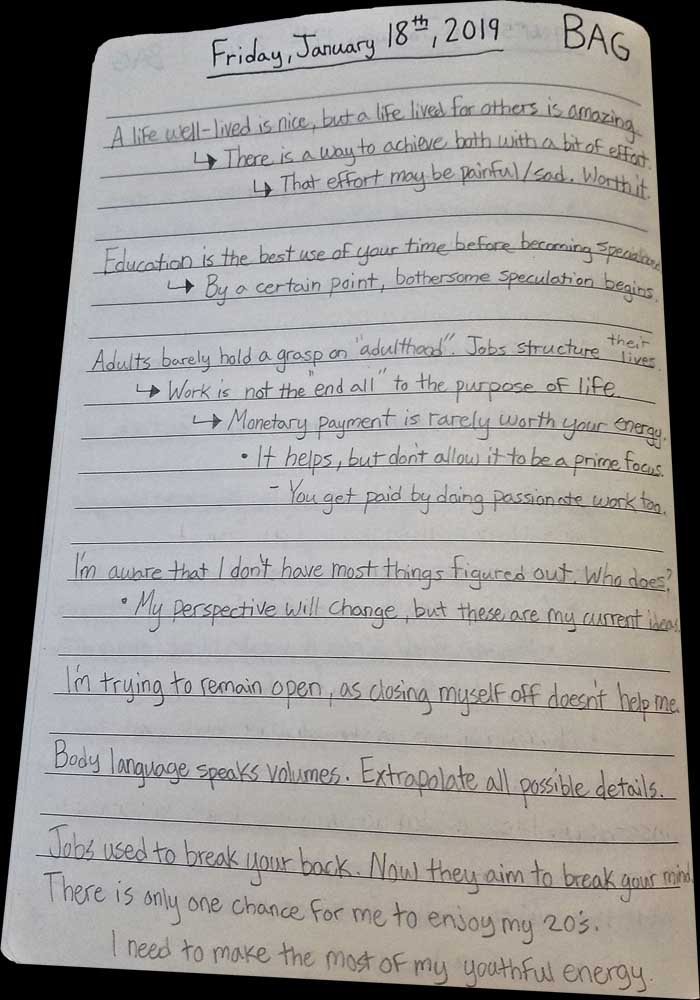 Friday, January 18th, 2019
BAG
A life well-lived is nice, but a life lived for others is amazing.
↳ There is a way to achieve both with a bit of effort.
↳ That effort may be painful/sad. Worth it.
Education is the best use of your time before becoming specialized
↳ By a certain point, bothersome speculation begins.
Adults barely hold a grasp on "adulthood". Jobs structure their lives.
↳ Work is not the "end all" to the purpose of life.
↳ Monetary payment is rarely worth your energy.
• It helps, but don't allow it to be a prime focus.
- You get paid by doing passionate work too.
I'm aware that I don't have most things figured out. Who does?
• My perspective will change, but these are my current ideas.
I'm trying to remain open, as closing myself off doesn't help me.
Body language speaks volumes. Extrapolate all possible details.
Jobs used to break your back. Now they aim to break your mind.
There is only one chance for me to enjoy my 20's.
I need to make the most of my youthful energy.